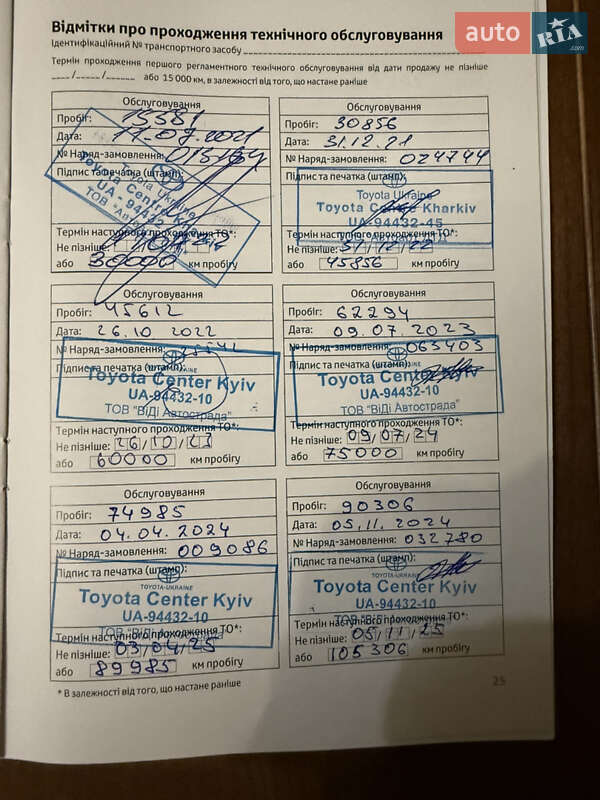 auto RIA.com
Відмітки про проходження технічного обслуговування
Ідентифікаційний № транспортного засобу
Термін проходження першого регламентного технічного обслуговування від дати продажу не пізніше
___/___/______ або 15 000 км, в залежності від того, що настане раніше
Обслуговування
Пробіг: 15381
Дата: 11.09.2021
№ Наряд-замовлення: 015164
Підпис та печатка (штамп):
Toyota Ukraine
Toyota Centre
UA - 94432
ТОВ "Ав
Термін наступного проходження ТО*:
Не пізніше:
або 30000 км пробігу
Обслуговування
Пробіг: 30856
Дата: 31.12.21
№ Наряд-замовлення: 024744
Підпис та печатка (штамп):
Toyota Ukraine
Toyota Centre Kharkiv
UA-94432-45
Термін наступного проходження ТО*:
Не пізніше: 31/12/22
або 45856 км пробігу
Обслуговування
Пробіг: 45612
Дата: 26.10 2022
№ Наряд-замовлення:
Підпис та печатка (штамп):
Toyota Center Kyiv
UA-94432-10
ТОВ "ВіДі Автострада"
Термін наступного проходження ТО*:
Не пізніше: 26/10/23
або 60000 км пробігу
Обслуговування
Пробіг: 62294
Дата: 09.07.2023
№ Наряд-замовлення: 063403
Підпис та печатка (штамп):
Toyota Center Kyiv
UA-94432-10
ТОВ "ВіДі Автострада"
Термін наступного проходження ТО*:
Не пізніше: 09/07/24
або 75000 км пробігу
Обслуговування
Пробіг: 74985
Дата: 04.04.2024
№ Наряд-замовлення: 009086
Підпис та печатка (штамп):
TOYOTA-UKRAINE
Toyota Center Kyiv
UA-94432-10
ТОВ "ВіДі Автострада"
Термін наступного проходження ТО*:
Не пізніше: 03/04/25
або 89985 км пробігу
Обслуговування
Пробіг: 90306
Дата: 05.11.2024
№ Наряд-замовлення: 032780
Підпис та печатка (штамп):
TOYOTA-UKRAINE
Toyota Center Kyiv
UA-94432-10
ТОВ "ВіДі Автострада"
Термін наступного проходження ТО*:
Не пізніше: 05/11/25
або 105306 км пробігу
* В залежності від того, що настане раніше
25